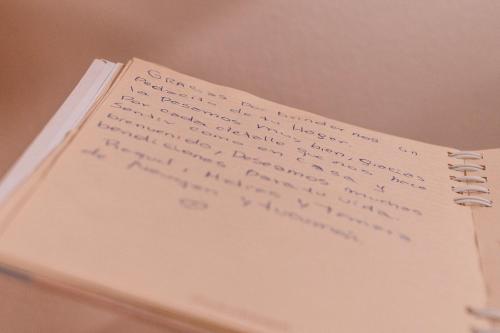 Gracias por brindarnos un
pedacito de tu Hogar.
la pasamos muy bien, gracias
Por cada detalle que nos hace
sentir como en casa y
bienvenido, Deseamos muchas
bendiciones para tu vida.
Raquel, y Tamara
de y